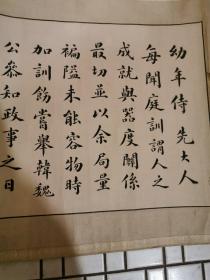 幼年侍 先大人
每聞庭訓謂人之
成就與器度關係
最切並以余局量
褊隘未能容物時
加訓飭嘗舉韓魏
公叅知政事之日